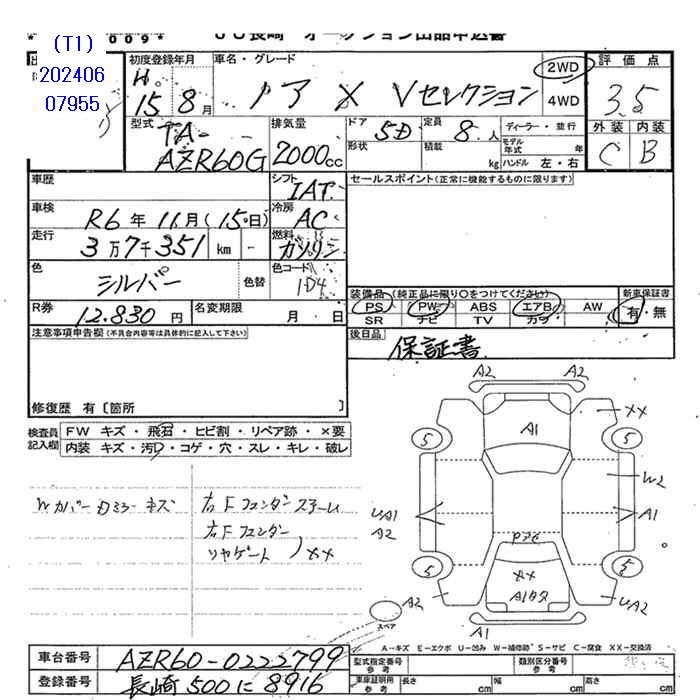 JU長崎 オークション出品申込書
(T1)
202406
07955
初度登録年月 車名・グレード 2WD 評価点
H. 15年 8月 ノア X Vセレクション 4WD 3.5
型式 排気量 ドア 5D 定員 8人 ディーラー・並行 外装 内装
TA-AZR60G 2000cc 形状 積載 kg モデル年式 年 ハンドル 左・右 C B
車歴 シフト IAT セールスポイント(正常に機能するものに限ります)
車検 R6年 11月(15日) 冷房 AC
走行 3万7千351 km - 燃料 ガソリン
色 シルバー 色替 色コード 1D4
装備品(純正品に限り○をつけてください) 新車保証書
PS PW ABS エアB AW 有・無
SR ナビ TV カワ
R券 12.830円 名変期限 月 日
後日品 保証書
注意事項申告欄(不具合内容等は具体的に記入して下さい)
修復歴 有〔箇所 〕
検査員記入欄 FW キズ・飛石・ヒビ割・リペア跡・×要
内装 キズ・汚D・コゲ・穴・スレ・キレ・破レ
Wカバー Dミラーキズ
右Fフェンダーステーム
右Fフェンダー
リヤゲート )XX
A2 A2
A1 XX
5 5
W2
UA1 A1
A2
PアC
5 5
XX
A1タヌ
A2 UA2
スペア A1
A-キズ E-エクボ U-凹み W-補修跡 S-サビ C-腐食 XX-交換済
車台番号 AZR60-0222799 型式指定番号 参考 類別区分番号 参考
登録番号 長崎500に8916 車庫証明用 参考 長さ cm 幅 cm 高さ cm